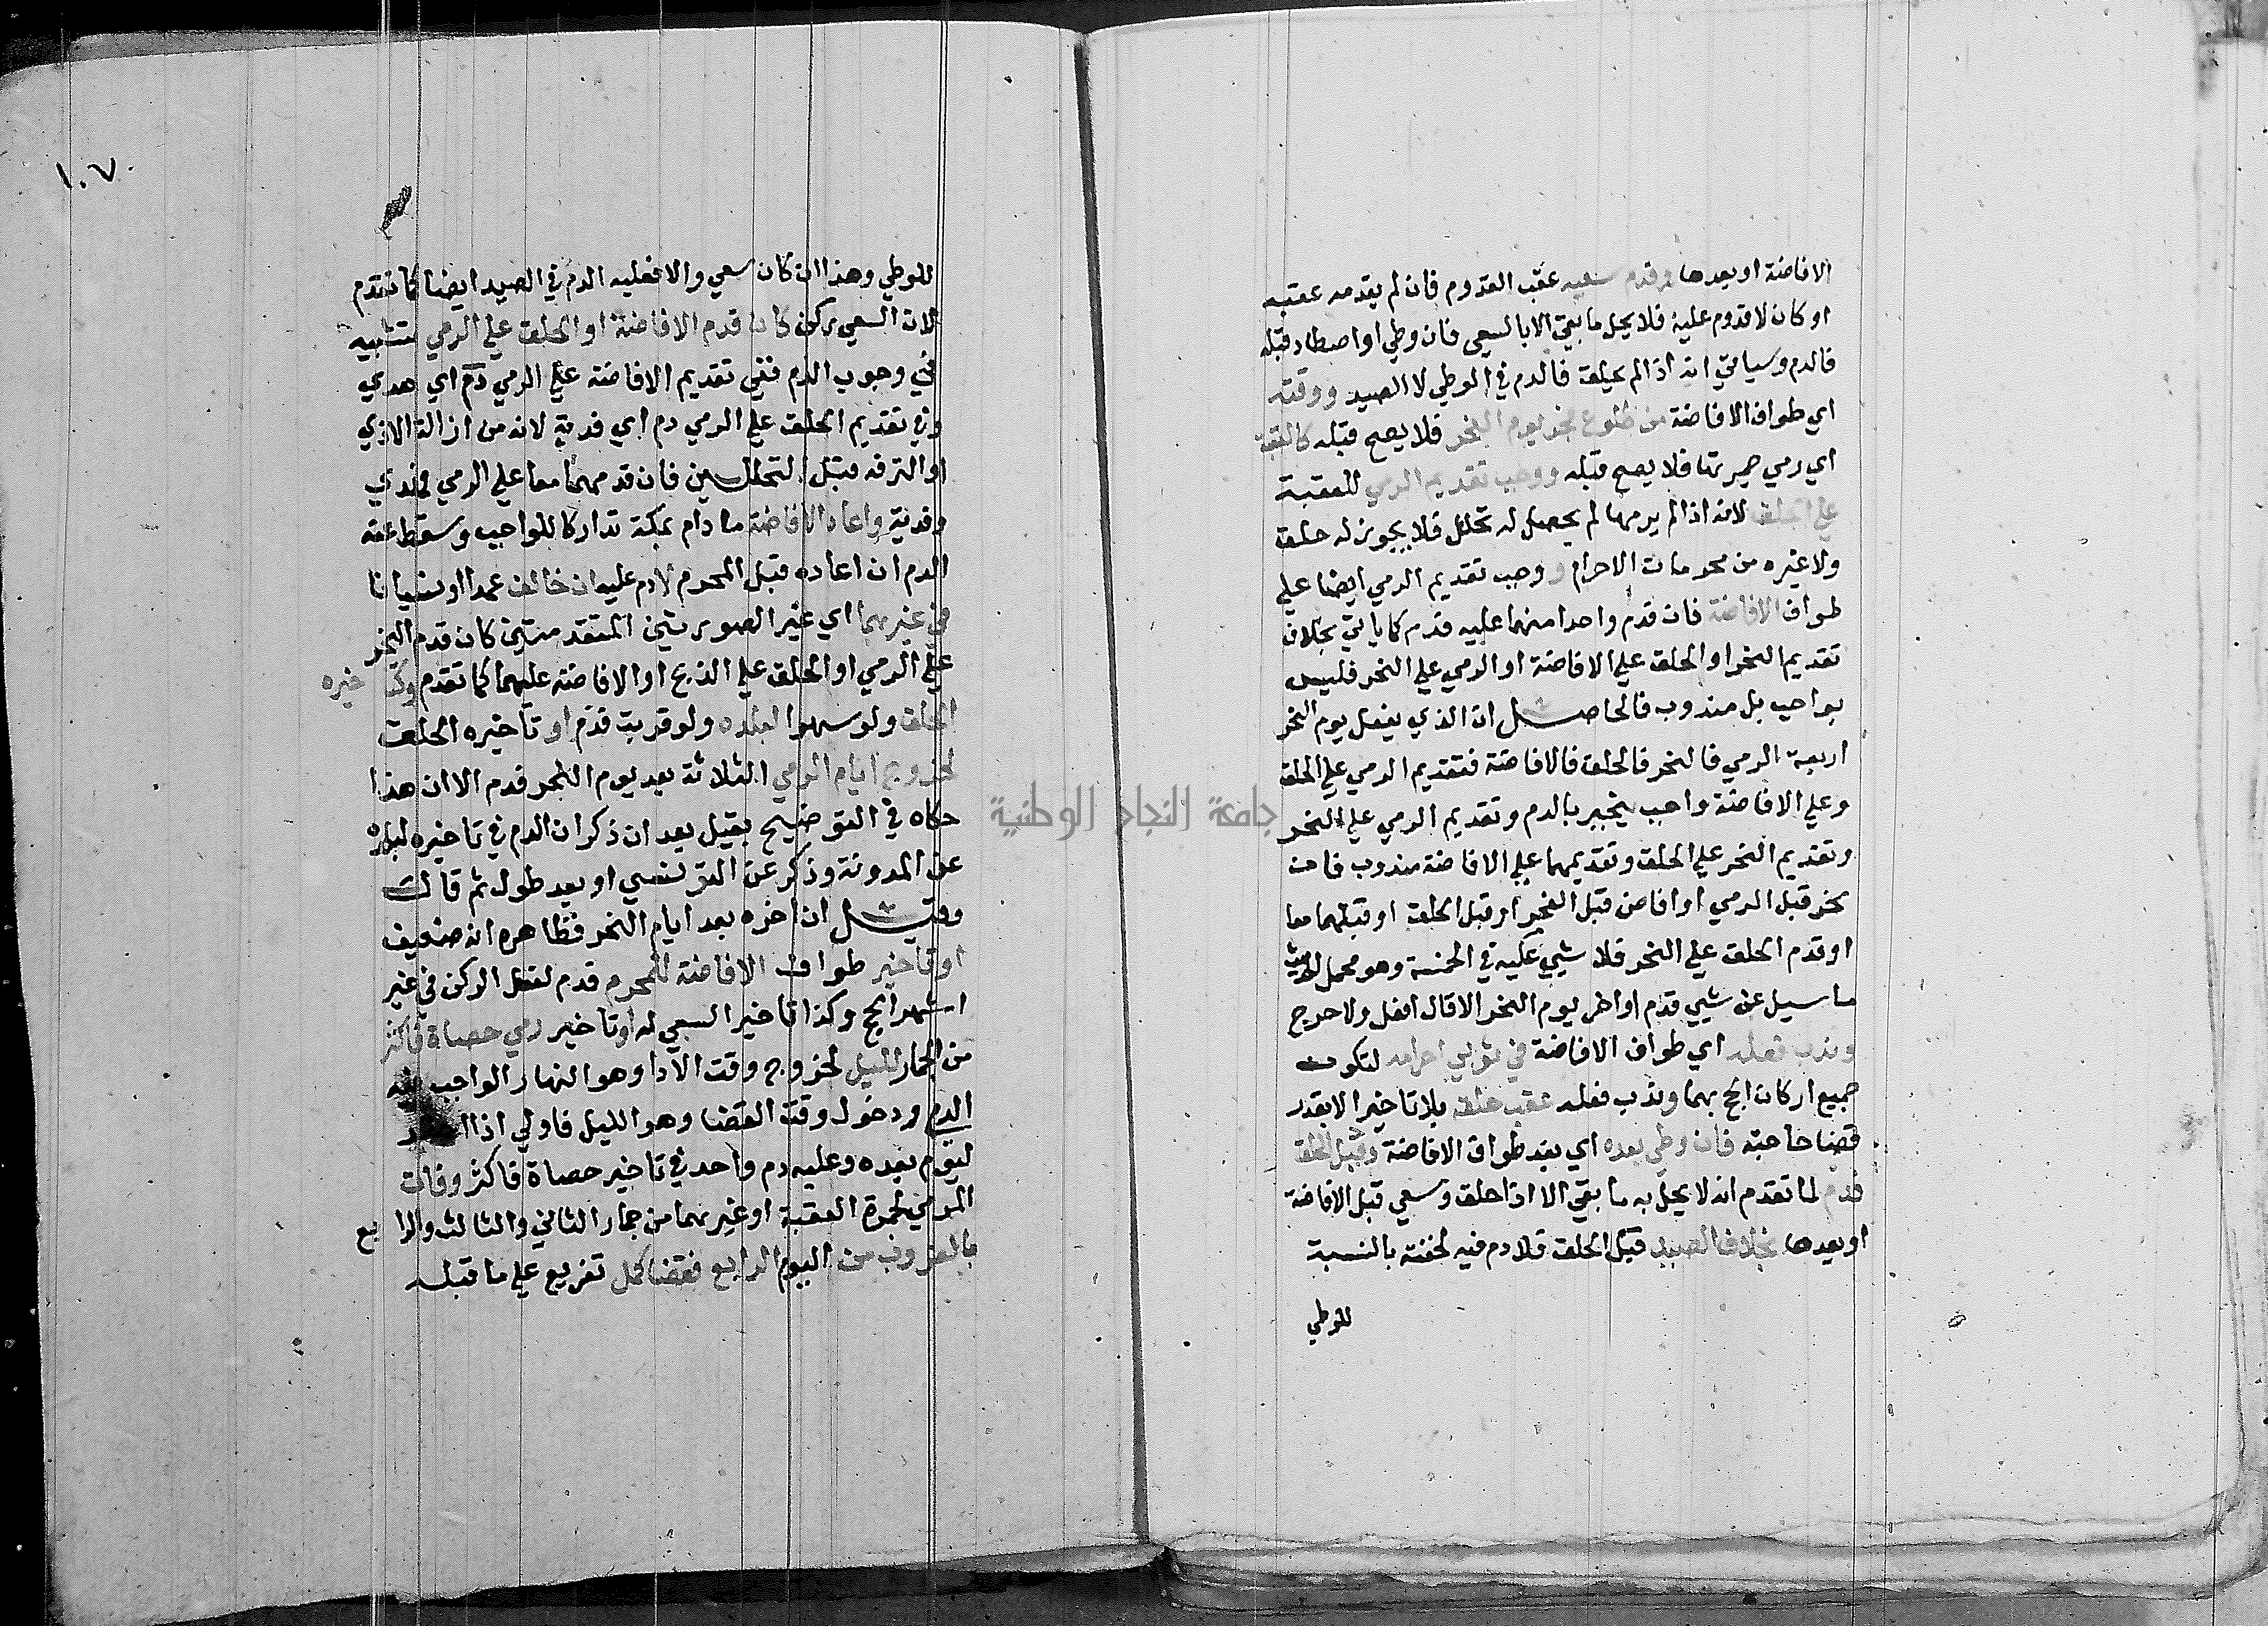 الافاضة او بعدها وقدم سعيه عقب القدوم فان لم يقدمه عقبه
او كان لا قدوم عليه فلا يحل ما بقي الا بالسعي فان وطي او اصطاد قبله
فالدم وسياتي انه اذا لم يحلق فالدم في الوطي لا الصيد ووقته
اي طواف الافاضة من طلوع فجر يوم النحر فلا يصح قبله كالعقبة
اي رمي جمرتها فلا يصح قبله ووجب تقديم الرمي للعقبة
علي الحلق لانه اذا لم يرمها لم يحصل له تحلل فلا يجوز له حلق
ولا غيره من محرمات الاحرام ووجب تقديم الرمي ايضا علي
طواف الافاضة فان قدم واحدا منهما عليه فدم كما ياتي بخلاف
تقديم النحر او الحلق علي الافاضة او الرمي علي النحر فليس
بواجب بل مندوب فالحاصل ان الذي يفعل يوم النحر
اربعة الرمي فالنحر فالحلق فالافاضة فتقديم الرمي علي الحلق
وعلي الافاضة واجب يجبر بالدم وتقديم الرمي علي النحر
وتقديم النحر علي الحلق وتقديمهما علي الافاضة مندوب فان
نحر قبل الرمي او افاض قبل النحر او قبل الحلق او قبلهما معا
او قدم الحلق علي النحر فلا شيي عليه في الخمسة وهو محمل الحديث
ما سيل عن شيي قدم او اخر يوم النحر الا قال افعل ولا حرج
وندب فعله اي طواف الافاضة في ثوبي احرامه لتكون
جميع اركان الحج بهما وندب فعله عقب حلقه بلا تاخير الا بقدر
قضا حاجته فان وطي بعده اي بعد طواف الافاضة وقبل الحلق
فدم لما تقدم انه لا يحل به ما بقي الا اذا حلق وسعي قبل الافاضة
او بعدها بخلاف الصيد قبل الحلق فلا دم فيه لخفته بالنسبة
للوطي
١٠٧
للوطي وهذا ان كان سعي والا فعليه الدم في الصيد ايضا كما تقدم
لان السعي ركن كان قدم الافاضة او الحلق علي الرمي تشبيه
في وجوب الدم ففي تقديم الافاضة علي الرمي دم اي هدي
وفي تقديم الحلق علي الرمي دم اي فدية لانه من ازالة الاذي
او الترفه قبل التحللين فان قدمهما معا علي الرمي فهدي
وفدية واعاد الافاضة ما دام بمكة تداركا للواجب وسقط عنه
الدم ان اعاده قبل المحرم لا دم عليه ان خالف عمدا او نسيانا
في غيرهما اي غير الصورتين المتقدمتين كان قدم النحر
علي الرمي او الحلق علي الذبح او الافاضة عليهما كما تقدم وكتاخيره
الحلق ولو سهوا لبلده ولو قربت فدم او تاخيره الحلق
لخروج ايام الرمي الثلاثة بعد يوم النحر فدم الا ان هذا
حكاه في التوضيح بقيل بعد ان ذكر ان الدم في تاخيره لبلده
عن المدونة وذكر عن التونسي او بعد طول ثم قال
وقيل ان اخره بعد ايام النحر فظاهره انه ضعيف
او تاخير طواف الافاضة للمحرم فدم لفعل الركن في غير
اشهر الحج وكذا تاخير السعي له او تاخير رمي حصاة فاكثر
من الجمار لليل لخروج وقت الادا وهو النهار الواجب فيه
الدم ودخول وقت القضا وهو الليل فاولي اذا
ليوم بعده وعليه دم واحد في تاخير حصاة فاكثر وفات
الرمي لجمرة العقبة او غيرهما من جمار الثاني والثالث والرابع
بالغروب من اليوم الرابع فقضا كل تفريع علي ما قبله
جامعة النجاح الوطنية